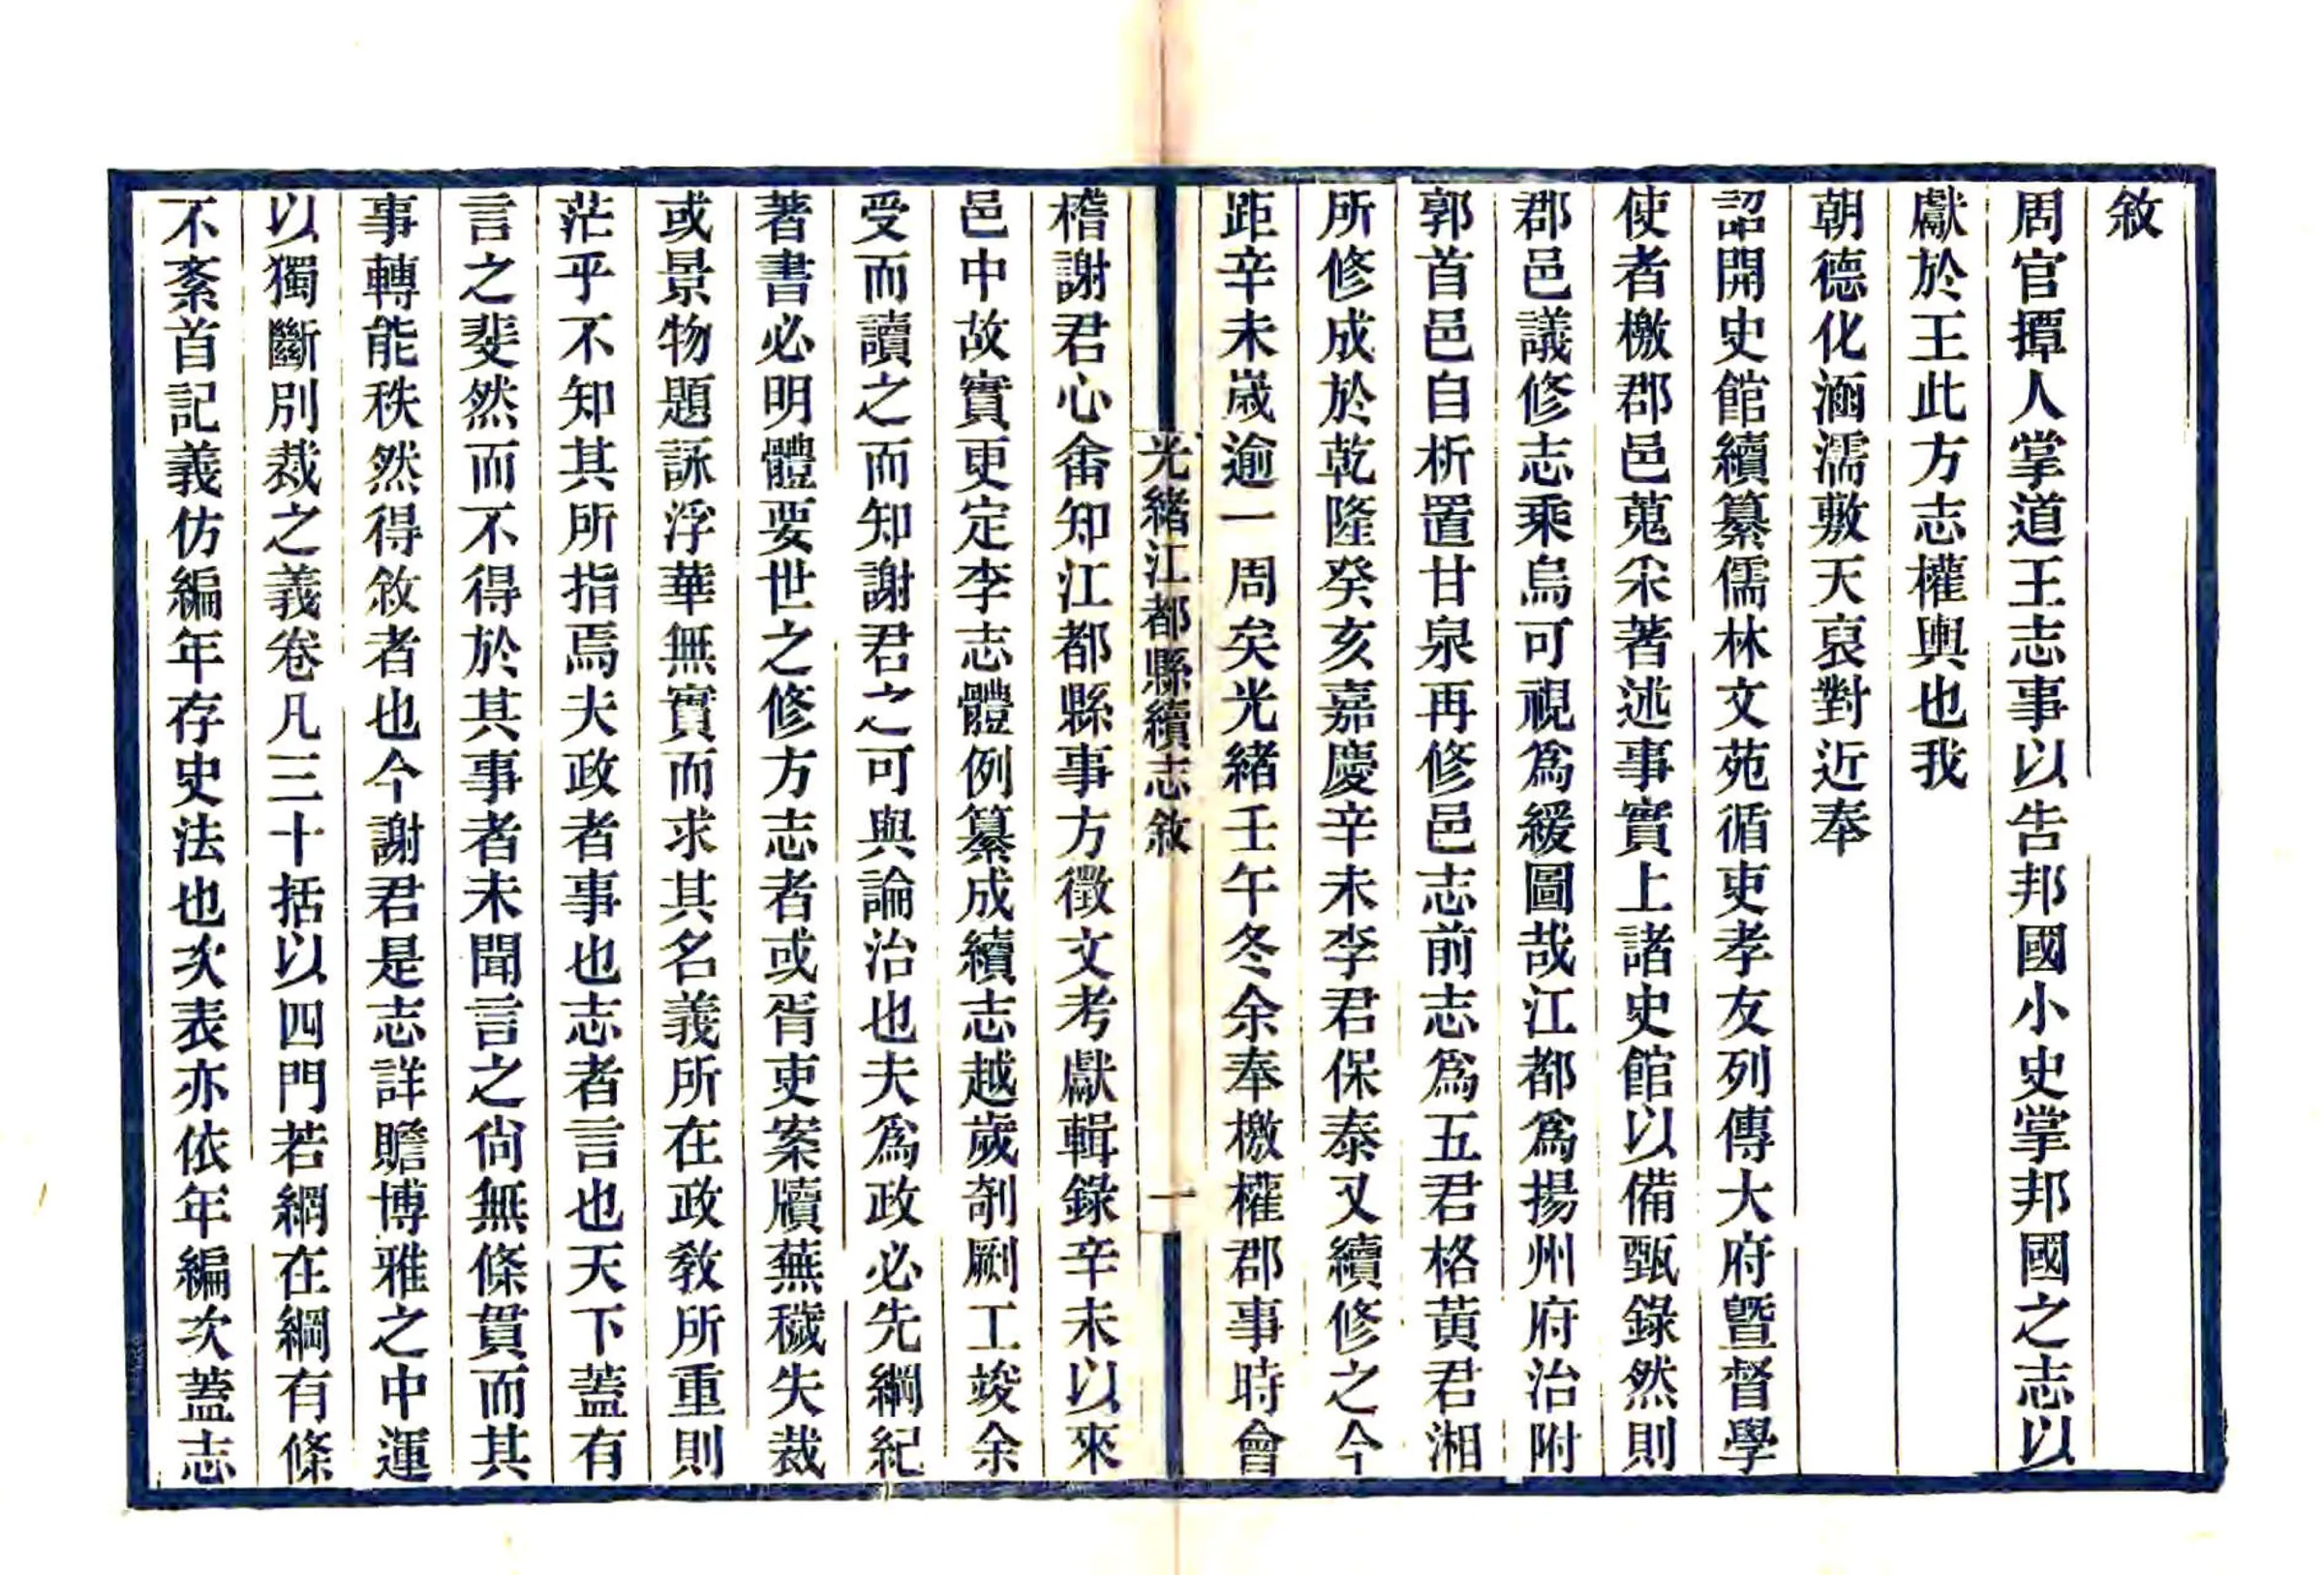 敘
周官撢人掌道王志事以告邦國小史掌邦國之志以
獻於王此方志權輿也我
朝德化涵濡敷天裒對近奉
詔開史館續纂儒林文苑循吏孝友列傳大府曁督學
使者檄郡邑蒐采著述事實上諸史館以備甄錄然則
郡邑議修志乘烏可視爲緩圖哉江都爲揚州府治附
郭首邑自析置甘泉再修邑志前志爲五君格黃君湘
所修成於乾隆癸亥嘉慶辛未李君保泰又續修之今
距辛未歲逾一周矣光緒壬午冬余奉檄權郡事時會
光緒江都縣續志敘
一
稽謝君心畬知江都縣事方徵文考獻輯錄辛未以來
邑中故實更定李志體例纂成續志越歲剞劂工竣余
受而讀之而知謝君之可與論治也夫爲政必先綱紀
著書必明體要世之修方志者或胥吏案牘蕪穢失裁
或景物題詠浮華無實而求其名義所在政教所重則
茫乎不知其所指焉夫政者事也志者言也天下蓋有
言之斐然而不得於其事者未聞言之尙無條貫而其
事轉能秩然得敘者也今謝君是志詳贍博雅之中運
以獨斷別裁之義卷凡三十括以四門若網在綱有條
不紊首記義仿編年存史法也次表亦依年編次蓋志